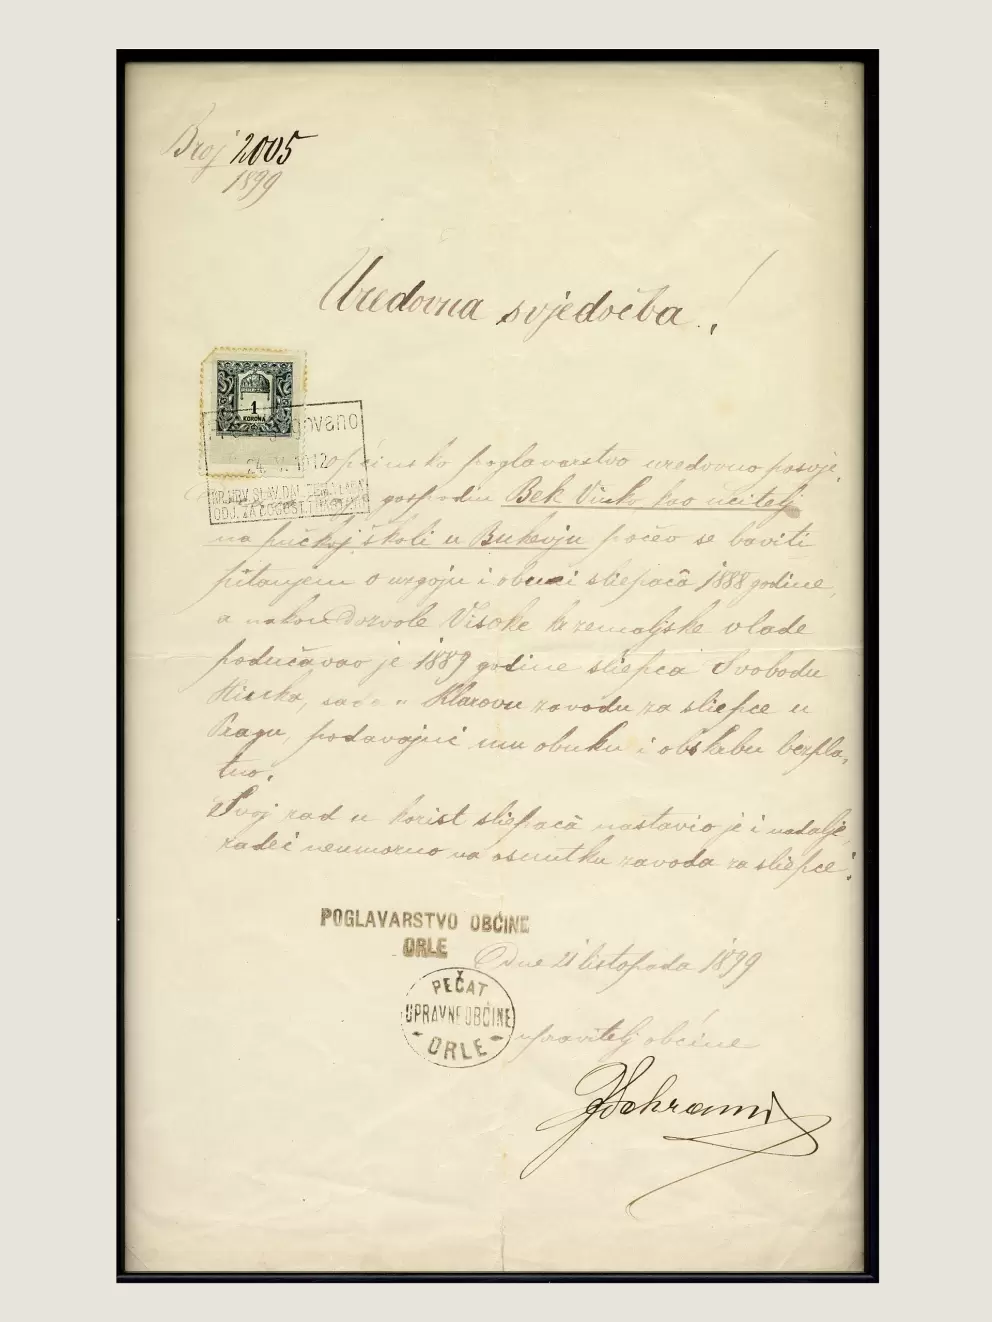 Broj 2005
1899
Uredovna svjedočba!
1
KORONA
24. V. 1912
općinsko poglavarstvo uredovno posvje
KR. HRV. SLAV. DAL. ZEM. VLADA
gospodin Bek Vinko, kao učitelj
ODJ. ZA BOGOŠT. I NASTAVU
na pučkoj školi u Bukevju počeo se baviti
pitanjem o uzgoju i obuci sliepacâ 1888 godine,
a nakon dozvole Visoke kr zemaljske vlade
podučavao je 1889 godine sliepca Svobodu
Hinka, sada u Klarovu zavodu za sliepce u
Pragu, podavajuć mu obuku i obskrbu bezpla,
tno.
Svoj rad u korist sliepacâ nastavio je i nadalje,
radeć neumorno na osnutku zavoda za sliepce.
POGLAVARSTVO OBĆINE
ORLE
Dne 21 listopada 1899
PEČAT
UPRAVNE OBĆINE
ORLE
upravitelj obćine
Schram